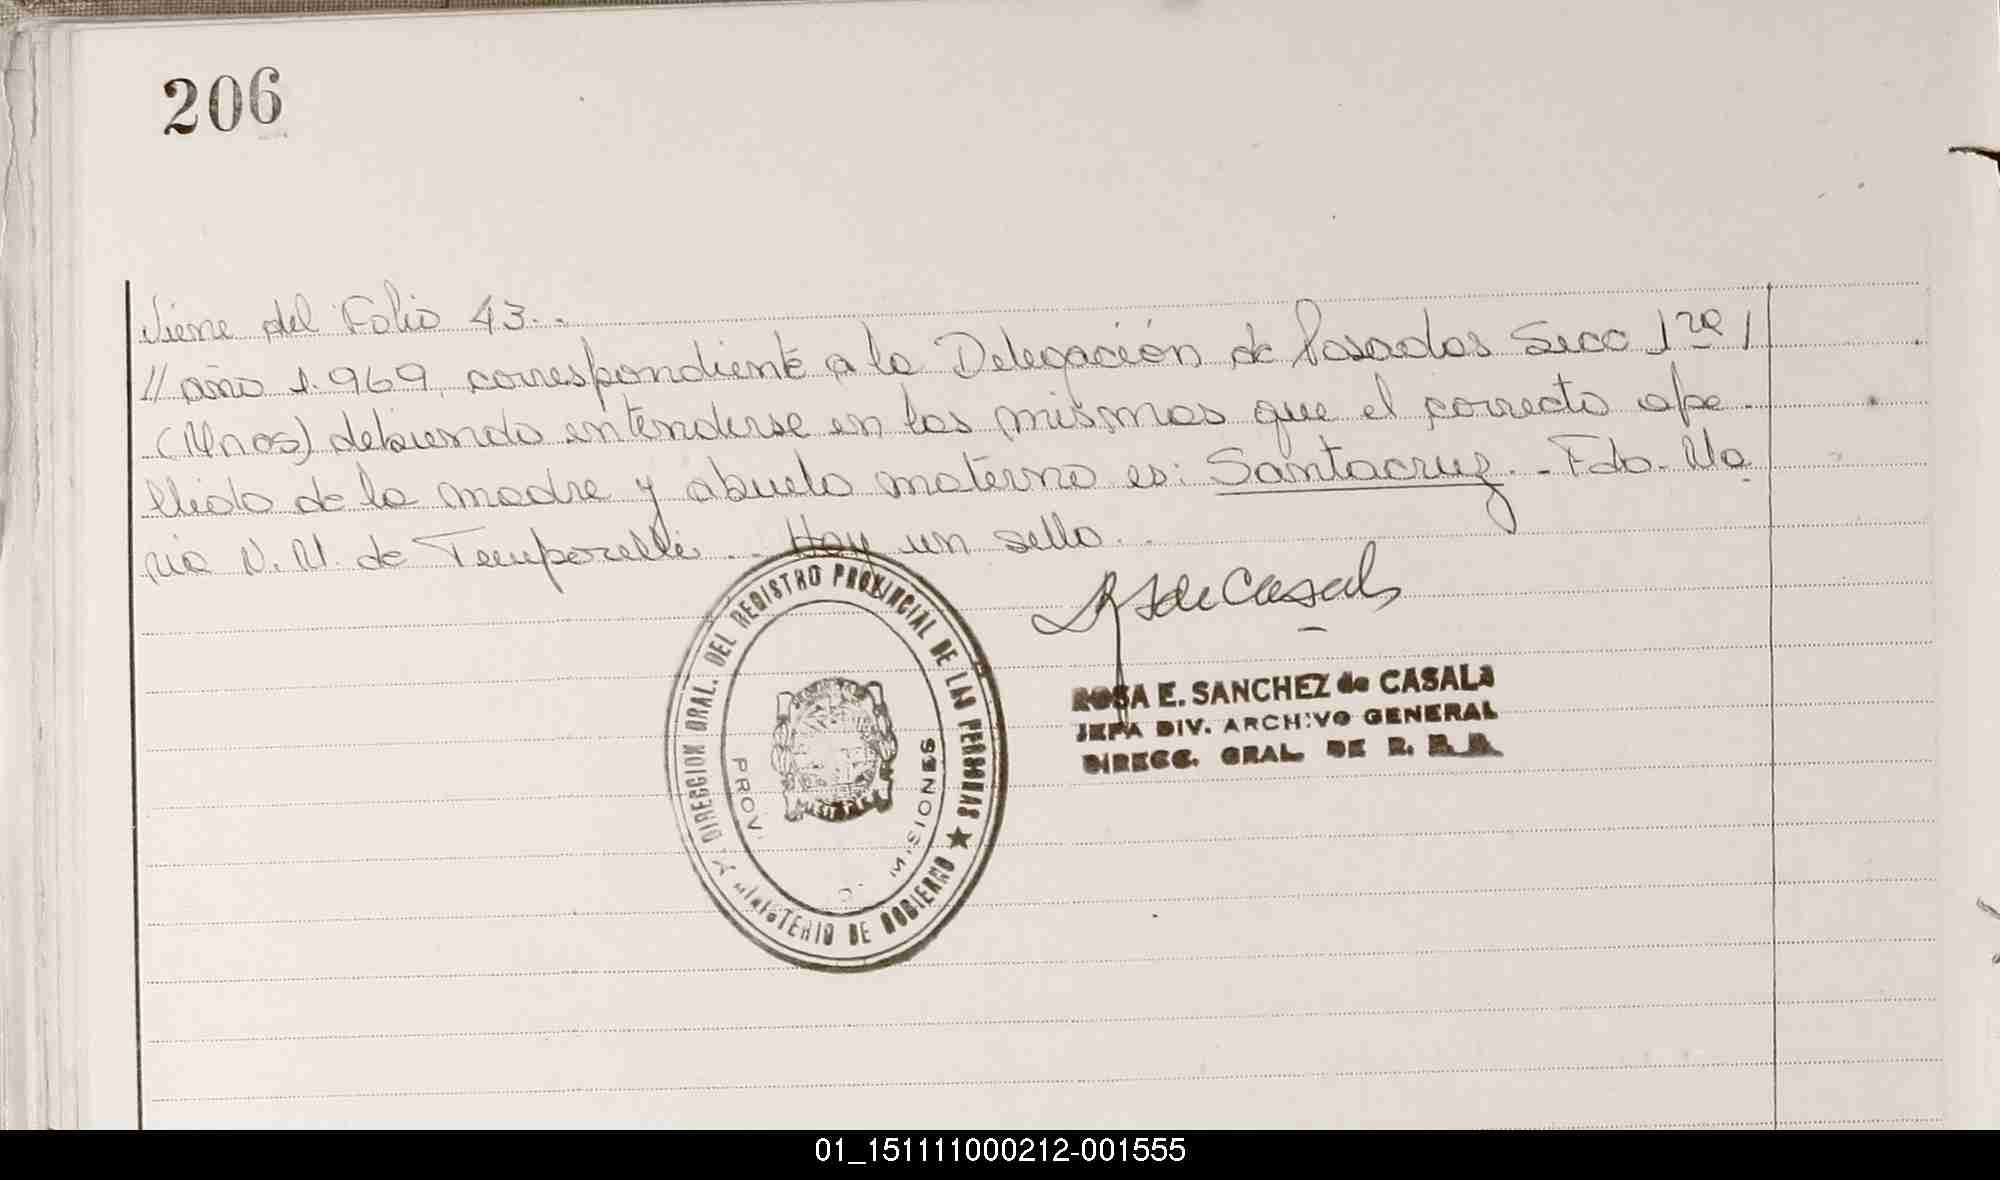 206
Viene del Folio 43..
// año 1.969, correspondiente a la Delegación de Posadas Secc 1ra /
debiendo entenderse en los mismos que el correcto ape-
llido de la madre y abuelo materno es: Santacruz.- Fdo. Ma
ria N. M. de Temporelli.- Hay un sello..
DIRECCION GRAL. DEL REGISTRO PROVINCIAL DE LAS PERSONAS ★
MINISTERIO DE GOBIERNO
PROV. MISIONES
ROSA E. SANCHEZ de CASALS
JEFA DIV. ARCHIVO GENERAL
DIRECC. GRAL. DE R.
01_151111000212-001555